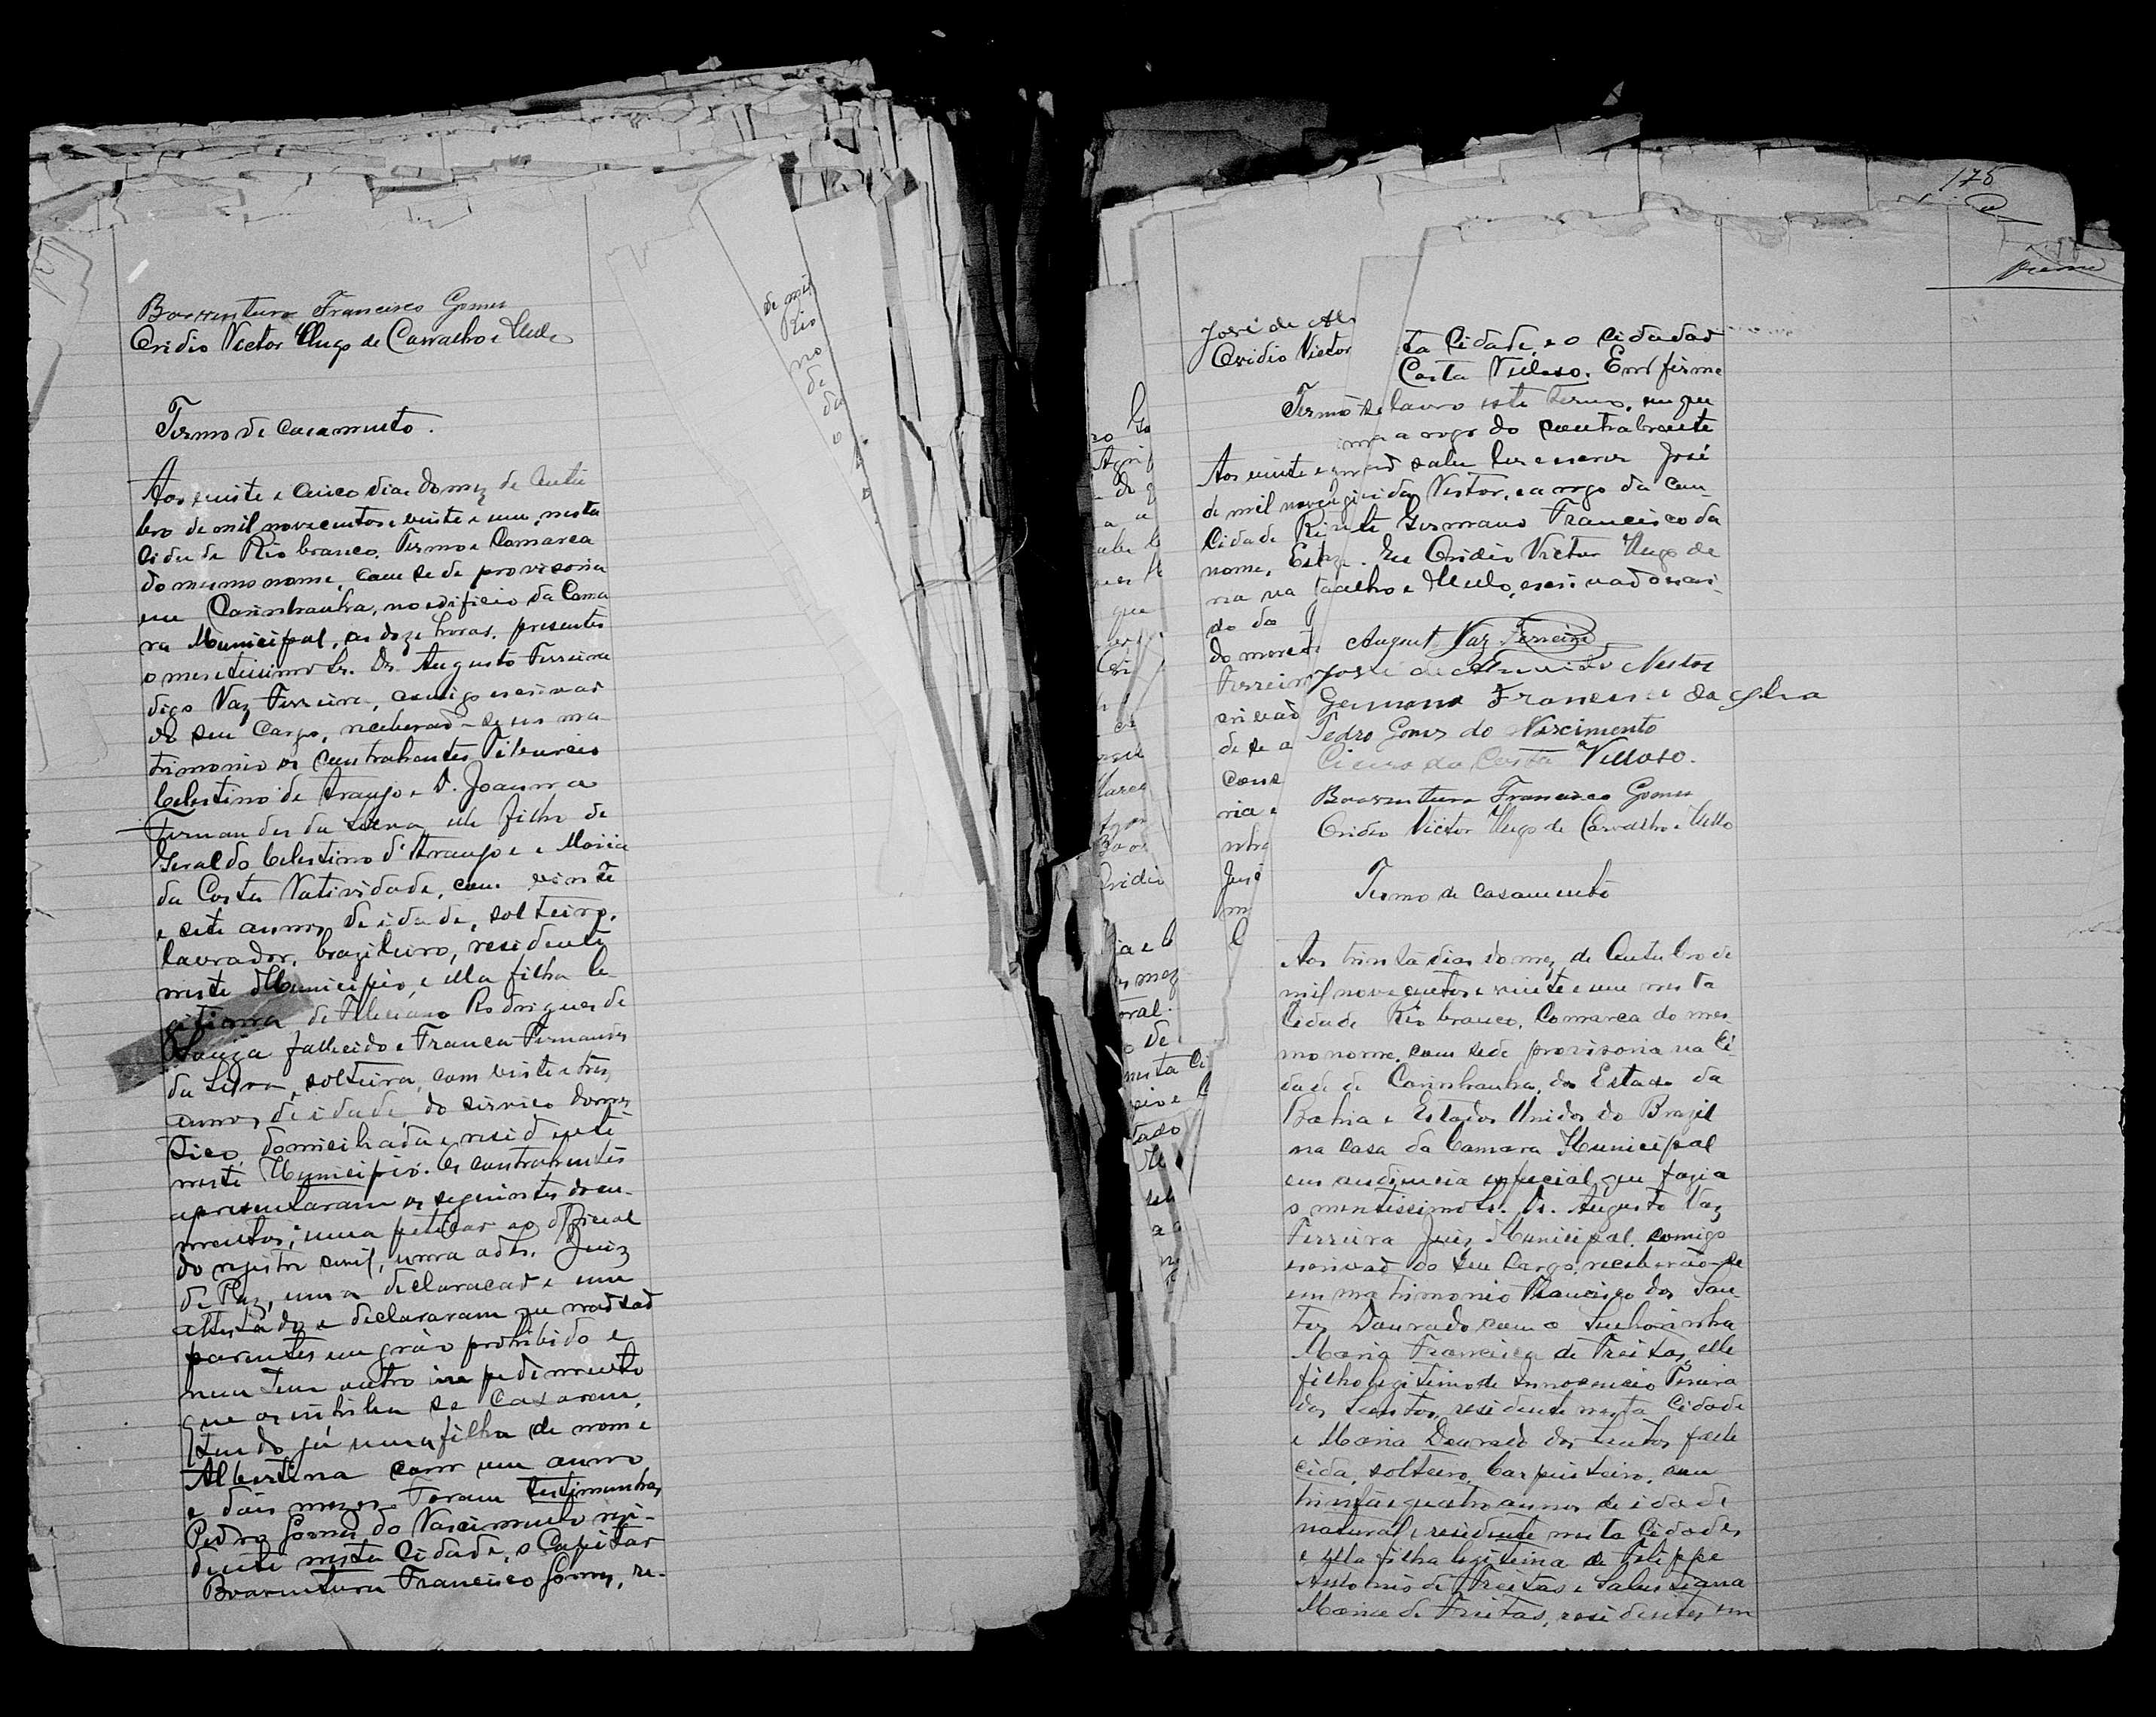 Boaventura Francisco Gomes
Ovidio Victor Hugo de Carvalho e Mello
Termo de casamento.
Aos vinte e cinco dias do mez de Outu
bro de mil novecentos e vinte e um, nesta
Cidade Rio branco, Termo e Comarca
do mesmo nome, com séde provisoria
em Carinhanha, no edificio da Cama
ra Municipal, as doze horas, presentes
o meretissimo Sr. Dr. Augusto Ferreira
digo Vaz Ferreira, comigo escrivaõ
do seu Cargo, receberaõ-se em ma-
trimonio os contrahentes Tiburcio
Celestino de Araujo e D. Joanna
Fernandes da Silva, elle filho de
Geraldo Celestino d'Araujo e e Maria
da Costa Natividade, com vinte
e sete annos de idade, solteiro,
lavrador, brazileiro, residente
neste Municipio, e ella filha le-
gitima de Feliciano Rodrigues de
Souza fallecido e Franca Fernandes
da Silva, solteira, com vinte e tres
annos de idade, do serviço domes
tico, domiciliada e residente
neste Municipio. Os contrahentes
apresentaram os seguintes docu-
mentos; uma petição ao official
do registro civil, uma ao Sr. Juiz
de Paz, uma declaracaõ e um
attestado e declararam que naõ saõ
parentes em gráo prohibido e
nem tem outro impedimento
que os inhiba de casarem,
tendo já uma filha de nome
Albertina com um anno
e dois mezes. Foram testimunhas
Pedro Gomes do Nascimento resi-
dente nesta Cidade, o Capitaõ
Boaventura Francisco Gomes, re-
de mil
Rio
no
de
da
178
José de Al
Ovidio Victor
ta Cidade, e o Cidadaõ
Costa Velloso. E m firme
Termo se lavro este termo, em que
a rogo do contrahente
Aos vinte e naõ saber ler e escrever José
de mil nove Nestor, e a rogo da con-
Cidade Ri nte Germano Francisco da
nome, Est . Eu Ovidio Victor Hugo de
ria na valho e Mello, escrivaõ escri-
do do
do meret August Vaz Ferreira
Ferreir José de Almeida Nestor
crivaõ Germano Francisco da Silva
de se a Pedro Gomes do Nascimento
cons Cicero da Costa Velloso.
ria e Boaventura Francisco Gomes
nha Ovidio Victor Hugo de Carvalho e Mello
Termo de casamento
Aos trinta dias do mez de Outubro de
mil novecentos e vinte e um nesta
Cidade Rio branco, Comarca do mes
mo nome, com séde provisoria na Ci-
dade de Carinhanha, do Estado da
Bahia e Estados Unidos do Brazil
na casa da Camara Municipal
em audiencia especial que fazia
o meretissimo Sr. Dr. Augusto Vaz
Ferreira Juiz Municipal, comigo
escrivaõ do seu Cargo, receberão-se
em matrimonio Francisco dos San-
tos Dourado com a Senhorinha
Maria Francisca de Freitas, elle
filho legitimo de Innocencio Pereira
dos Santos, residente nesta Cidade
e Maria Dourado dos Santos falle
cida, solteiro, Carpinteiro, com
trinta e quatro annos de idade
natural e residente nesta Cidade,
e ella filha legitima de Felippe
Antonio de Freitas e Salustiana
Maria de Freitas, residentes em